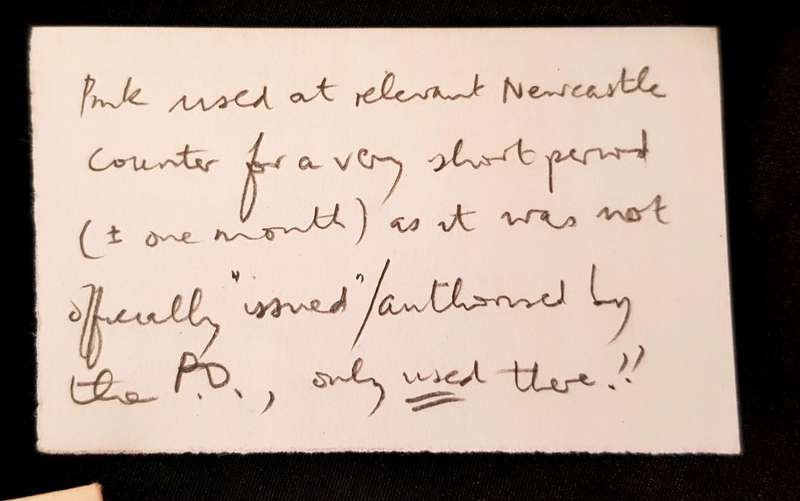 Pink used at relevant Newcastle
counter for a very short period
(± one month) as it was not
officially "issued"/authorised by
the P.O., only used there.!!